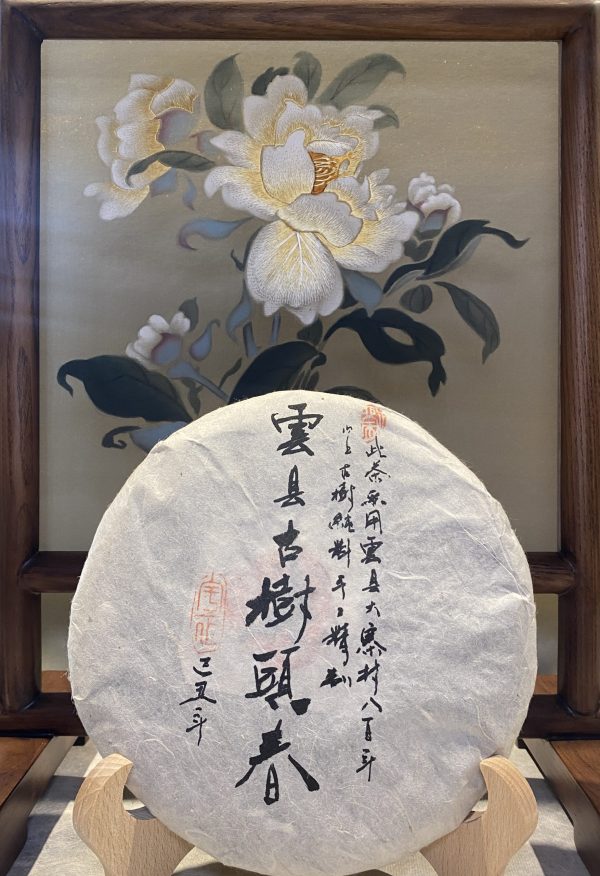 此茶采用雲县大寨村八百年
以上古樹純料手工精制
雲县古樹頭春
己丑年